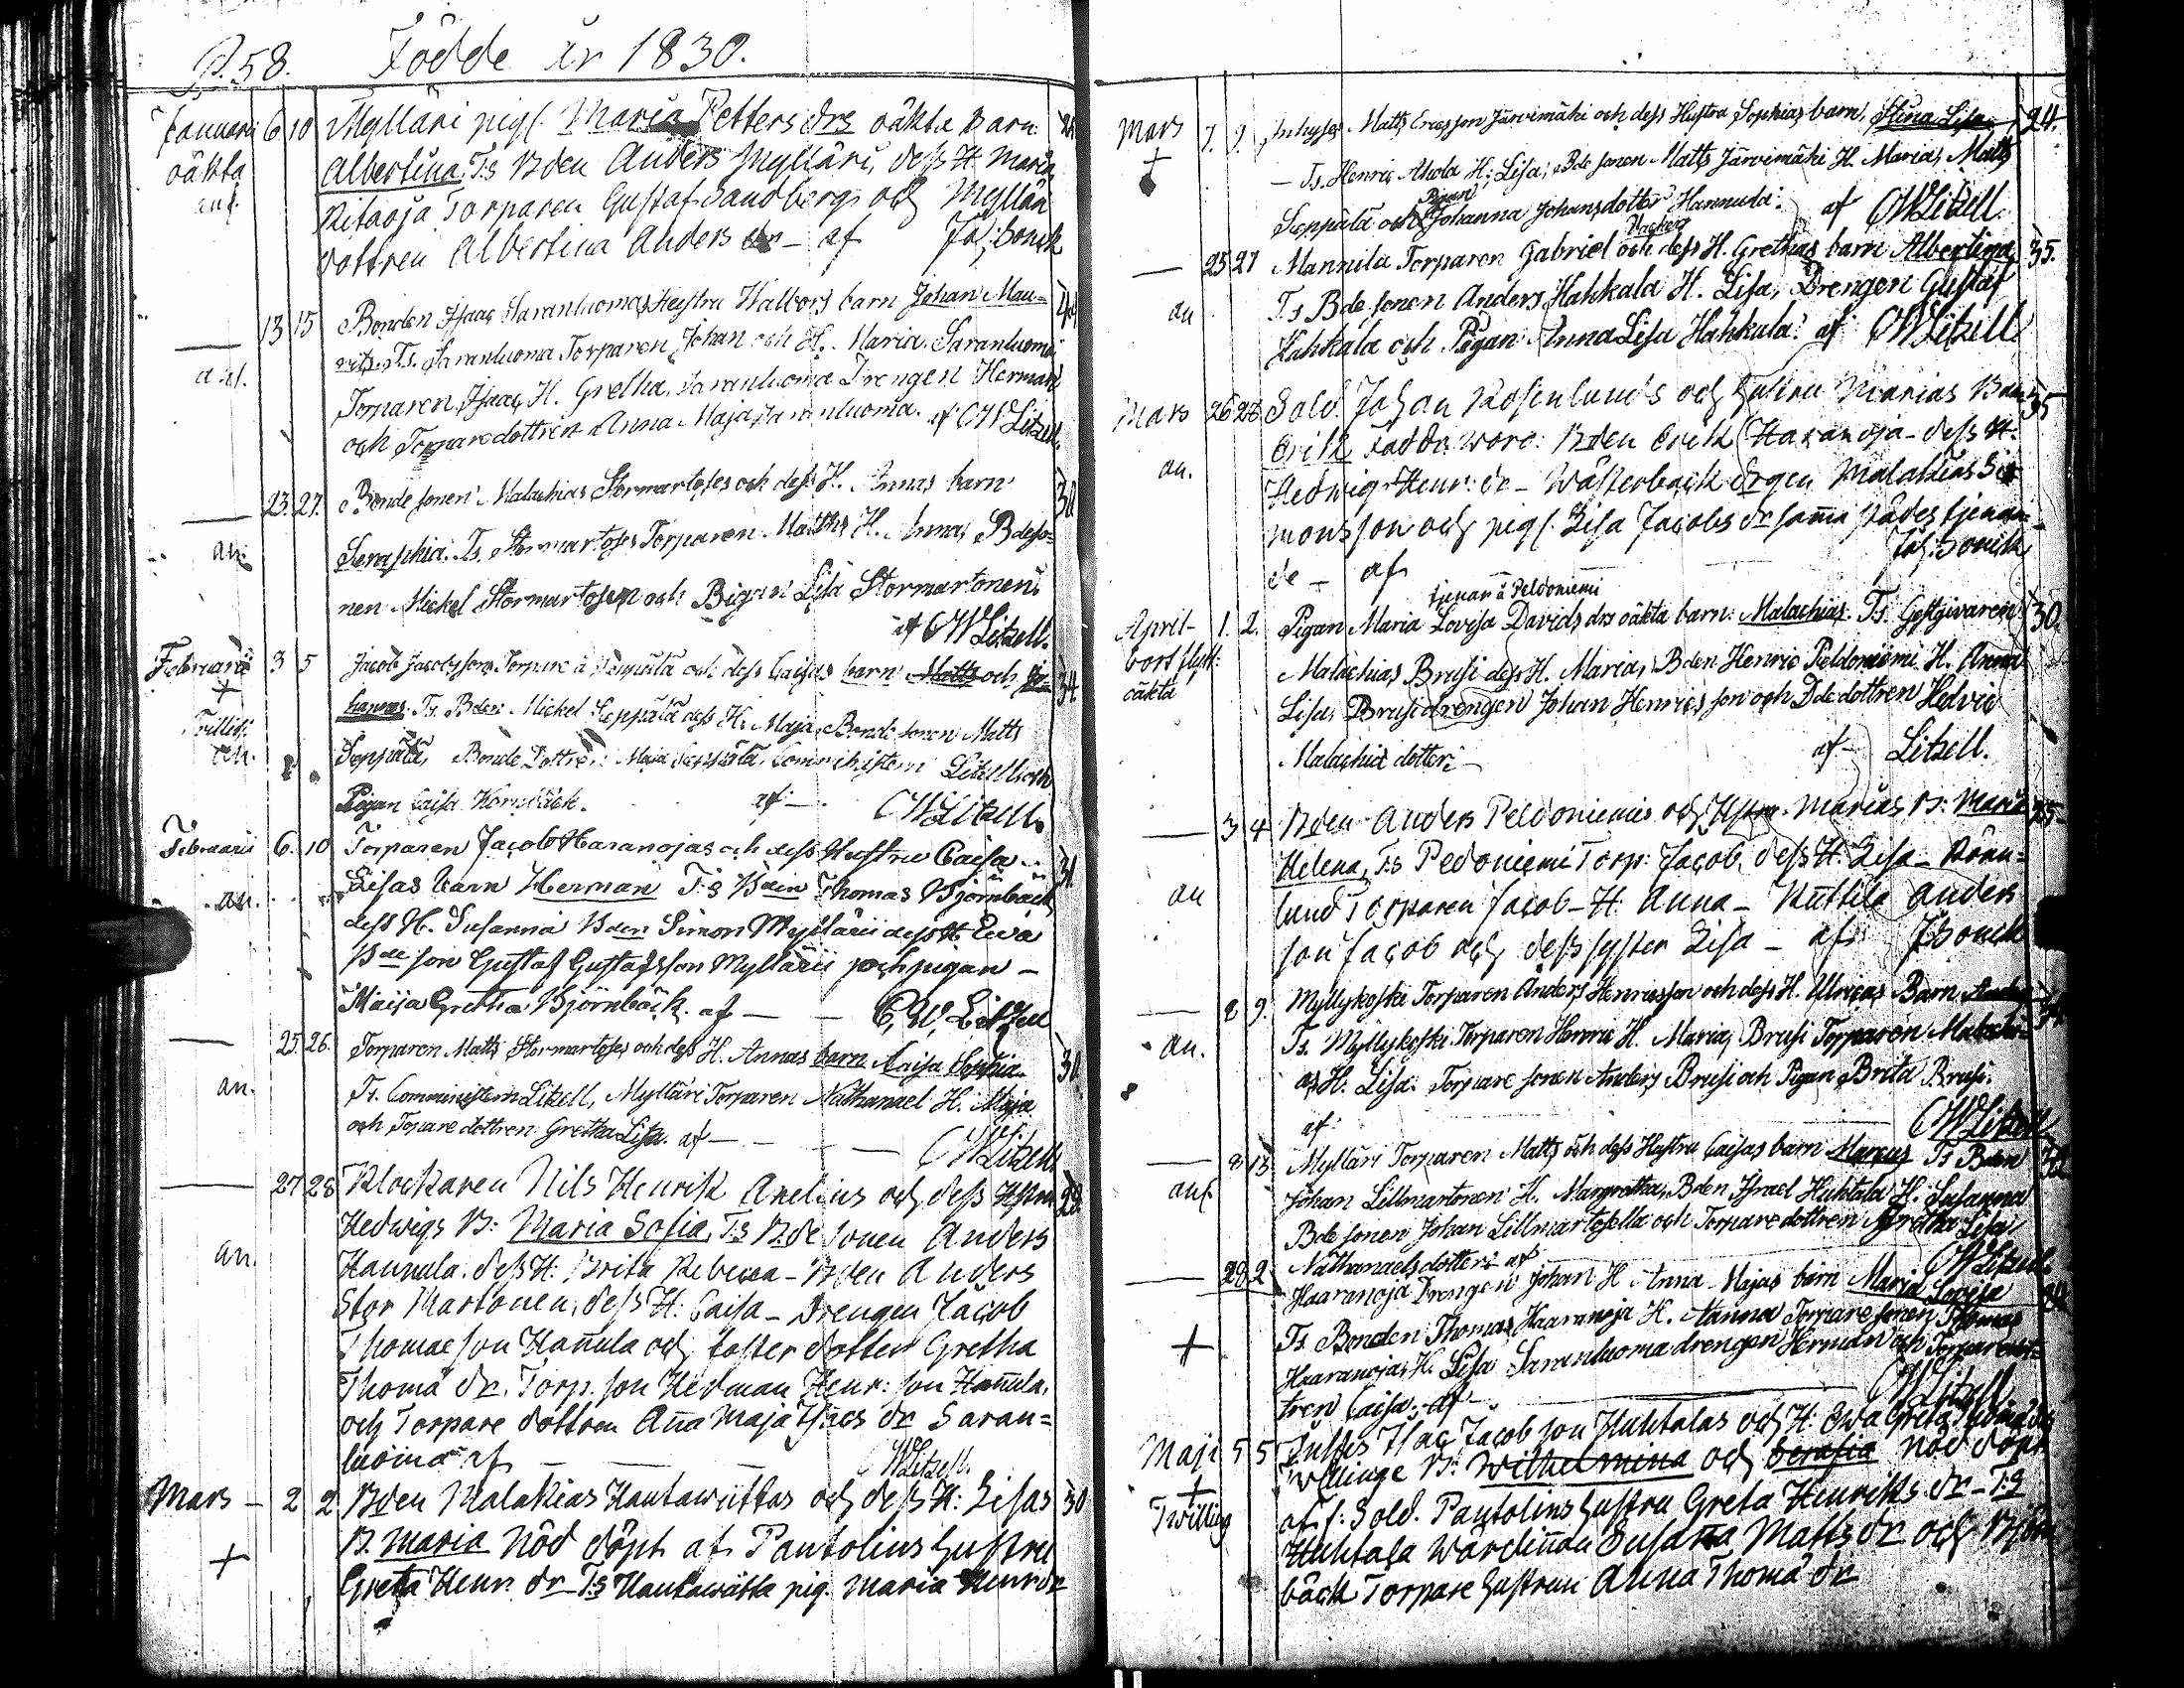 P. 58. Födde år 1830.
Januari 6 10 Mylläri pig. Maria Petters drs oäkta Barn
oäkta Albertina, Ts Bden Anders Mylläri, dess H. Maria
anf. Ritaoja Torparen Gustaf Sandberg och Myllär
dottren Albertina Anders dr - af Joh: Bonck
13 15 Bonden Isaac Saranluomas Hustru Walbors barn Johan Mau= 44
ritz. Ts. Saranluoma Torparen Johan och H. Maria, Saranluoma
anf. Torparen Isaac H. Gretha, Saranluoma Drengen Herman
och Torparedottren Anna Maja Saranluoma. af CWLitzell.
23. 27. Bonde sonen Malachias Stormartoses och dess H. Annas barn 30.
an. Seraphia. Ts. Stormartoses Torparen Matths H. Anna, Bdeso=
nen Mickel Stormartosen och Pigan Lisa Stormartonen.
af CWLitzell.
Februarii 3 5 Jacob Jacobsson Torpare å Seppälä och dess Caisas barn Matts och Jo= 34.
+ hannes. Ts. Bden Mickel Seppälä dess H. Maja, Bonde sonen Matts
Tvilling Seppälä, Bonde Dottren Maja Seppälä, Comministern Litzell och
an. Pigan Caisa Kornbäck. af - CWLitzell.
Februarii 6. 10 Torparen Jacob Haranojas och dess Hustru Caisa 31.
an. Lisas barn Herman Ts Bden Thomas Björnback
dess H. Susanna Bden Simon Myllärii dess H Eva
Bde son Gustaf Gustafsson Myllärii och pigan -
Maija Gretha Björnbäck. af - C. W. Litzell
25. 26. Torparen Matts Stormartoses och dess H. Annas barn Caisa Sophia. 30.
an. Ts. Comministern Litzell, Mylläri Torparen Nathanael H. Maja
och Torpare dottren Gretha Lisa. af - CWLitzell
27 28 Klockaren Nils Henrik Arelius och dess Hstru 29.
Hedwigs B: Maria Sofia, Ts Bde sonen Anders
an. Hannula. dess H: Brita Rebecca - Bden Anders
Stor Martonen, dess H: Caisa - Drengen Jacob
Thomæ son Hanula och toster dotten Gretha
Thomä dr. Torp. son Herman Henr: son Hanula,
och Torpare dottren Ana Maja Isacs dr Saran=
luoma af CWLitzell.
Mars - 2 2. Bden Malakias Hautawiittas och dess H: Lisas 30
+ B. Maria Nöd döpt af Pantolins Hustru
Greta Henr. dr Ts Hautawiitta pig. Maria Henr dr
Mars 7. 9. Inhyses Matts Ericsson Järvimähi och dess Hustru Sophias barn, Stina Lisa 24.
+ - Ts. Henric Ahola H: Lisa, Bde sonen Matts Järvimähi H. Maria, Matts
Pigan
Seppälä och Johanna Johansdotter Hannula. af CWLitzell.
Hacker
25 27 Mannila Torparen Gabriel och dess H. Grethas barn Albertina 35.
an Ts Bde sonen Anders Hahkala H. Lisa, Drengen Gustaf
Hahkala och Pigan Anna Lisa Hahkala. af CWLitzell
Mars 26 28 Sold. Johan Rosenlunds och Hustru Marias Barn 35
Erik Faddr woro: Bden Erik Haranoja - dess H.
an. Hedwig Henr: dr - Wästerback drgen Malakias Si
monsson och pig. Lisa Jacobs dr sama städes tjenan
de - af Joh: Bonck
tjenan å Peldoniemi
April 1. 2. Pigan Maria Lovisa Davids drs oäkta barn: Malachias. Ts. Gestgivaren 30.
bortflytt: Malachias Brusi dess H. Maria, Bden Henric Peldoniemi H. Anna
oäkta Lisa, Brusi drengen Johan Henricsson och Bde dottren Hedvic
Malachiæ dotter. af - Litzell.
3 4 Bden Anders Peldoniemis och Hstru. Marias B: Maria 25
Helena, Ts Pedoniemi Torp: Jacob, dess H. Lisa - Rönn=
an lund Torparen Jacob - H: Anna - Kuttila Anders
son Jacob och dess syster Lisa - af JBonck
8 9. Myllykoski Torparen Anders Henricsson och dess H. Ulricas Barn
an. Ts. Myllykoski Torparen Henric H. Maria, Brusi Torparen Malachi=
as H. Lisa. Torpare sonen Anders Brusi och Pigan Brita Brusi.
af CWLitzell
8 13 Mylläri Torparen Matts och dess Hustru Caisas barn Marcus Ts Bden
anf. Johan Lillmartonen H. Margretha, Bden Israel Huhtala H. Susanna
Bde sonen Johan Lillmartosella och Torpare dottren Gretha Lisa
Nathanaelsdotter af CWLitzell.
28 2 Haaranoja Drengen Johan H Anna Majas barn Maria Lovisa
+ Ts Bonden Thomas Haaranoja H. Anna Torpare sonen Thomas
Haaranoja, H. Lisa Saranluoma drengen Herman och Torparedot=
tren Caisa. af - CWLitzell
Maji 5 5 Jultis Isac Jacobson Huhtalas och H: Ewa Greta
+ Twillinge B: Wilhelmina och Serafia Nöd döpt
Twilling af f: Sold. Pantolins Hustru Greta Henriks dr - Ts
Huhtala Wärdinnan Susana Matts dr och Björn
bäck Torpare Hustrun Anna Thomä dr